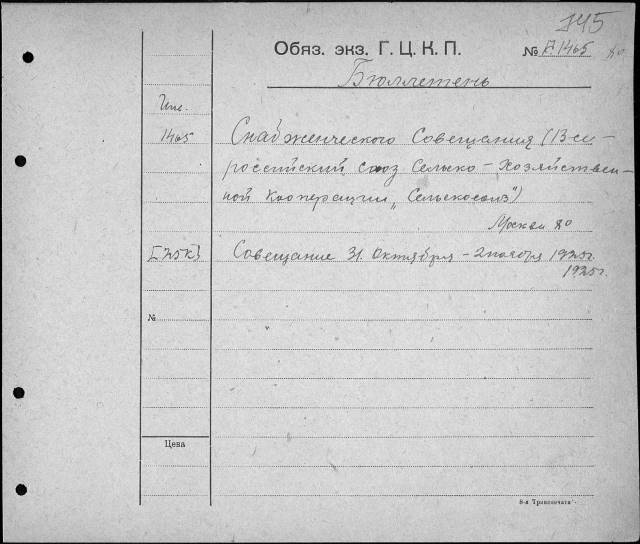 145
Обяз. экз. Г. Ц. К. П. № A.1465 8°
Бюллетень
Инв.
1465 Снабженческого Совещания (Все-
российский союз Сельско-Хозяйствен-
ной Кооперации „Сельскосоюз")
Москва 8°
[25к] Совещание 31 Октября - 2 ноября 1925г.
1925г.
№
Цена
8-я Транспечати